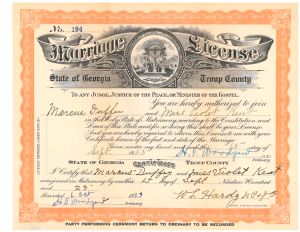 No. 194
Marriage License
State of Georgia Troup County
TO ANY JUDGE, JUSTICE OF THE PEACE, OR MINISTER OF THE GOSPEL
You are hereby authorized to join
Marcus Duffy and Miss Violet Kent
in the Holy State of Matrimony according to the Constitution and
Laws of this State and for so doing this shall be your License
And you are hereby required to return this
Given under my hand and seal this
Sept
STATE OF GEORGIA CERTIFICATE TROUP COUNTY
I Certify that Marcus Duffy and Miss Violet Kent
were joined in Matrimony by me this 1st day of Sept Nineteen Hundred
and 23
Recorded 1923
PARTY PERFORMING CEREMONY RETURN TO ORDINARY TO BE RECORDED